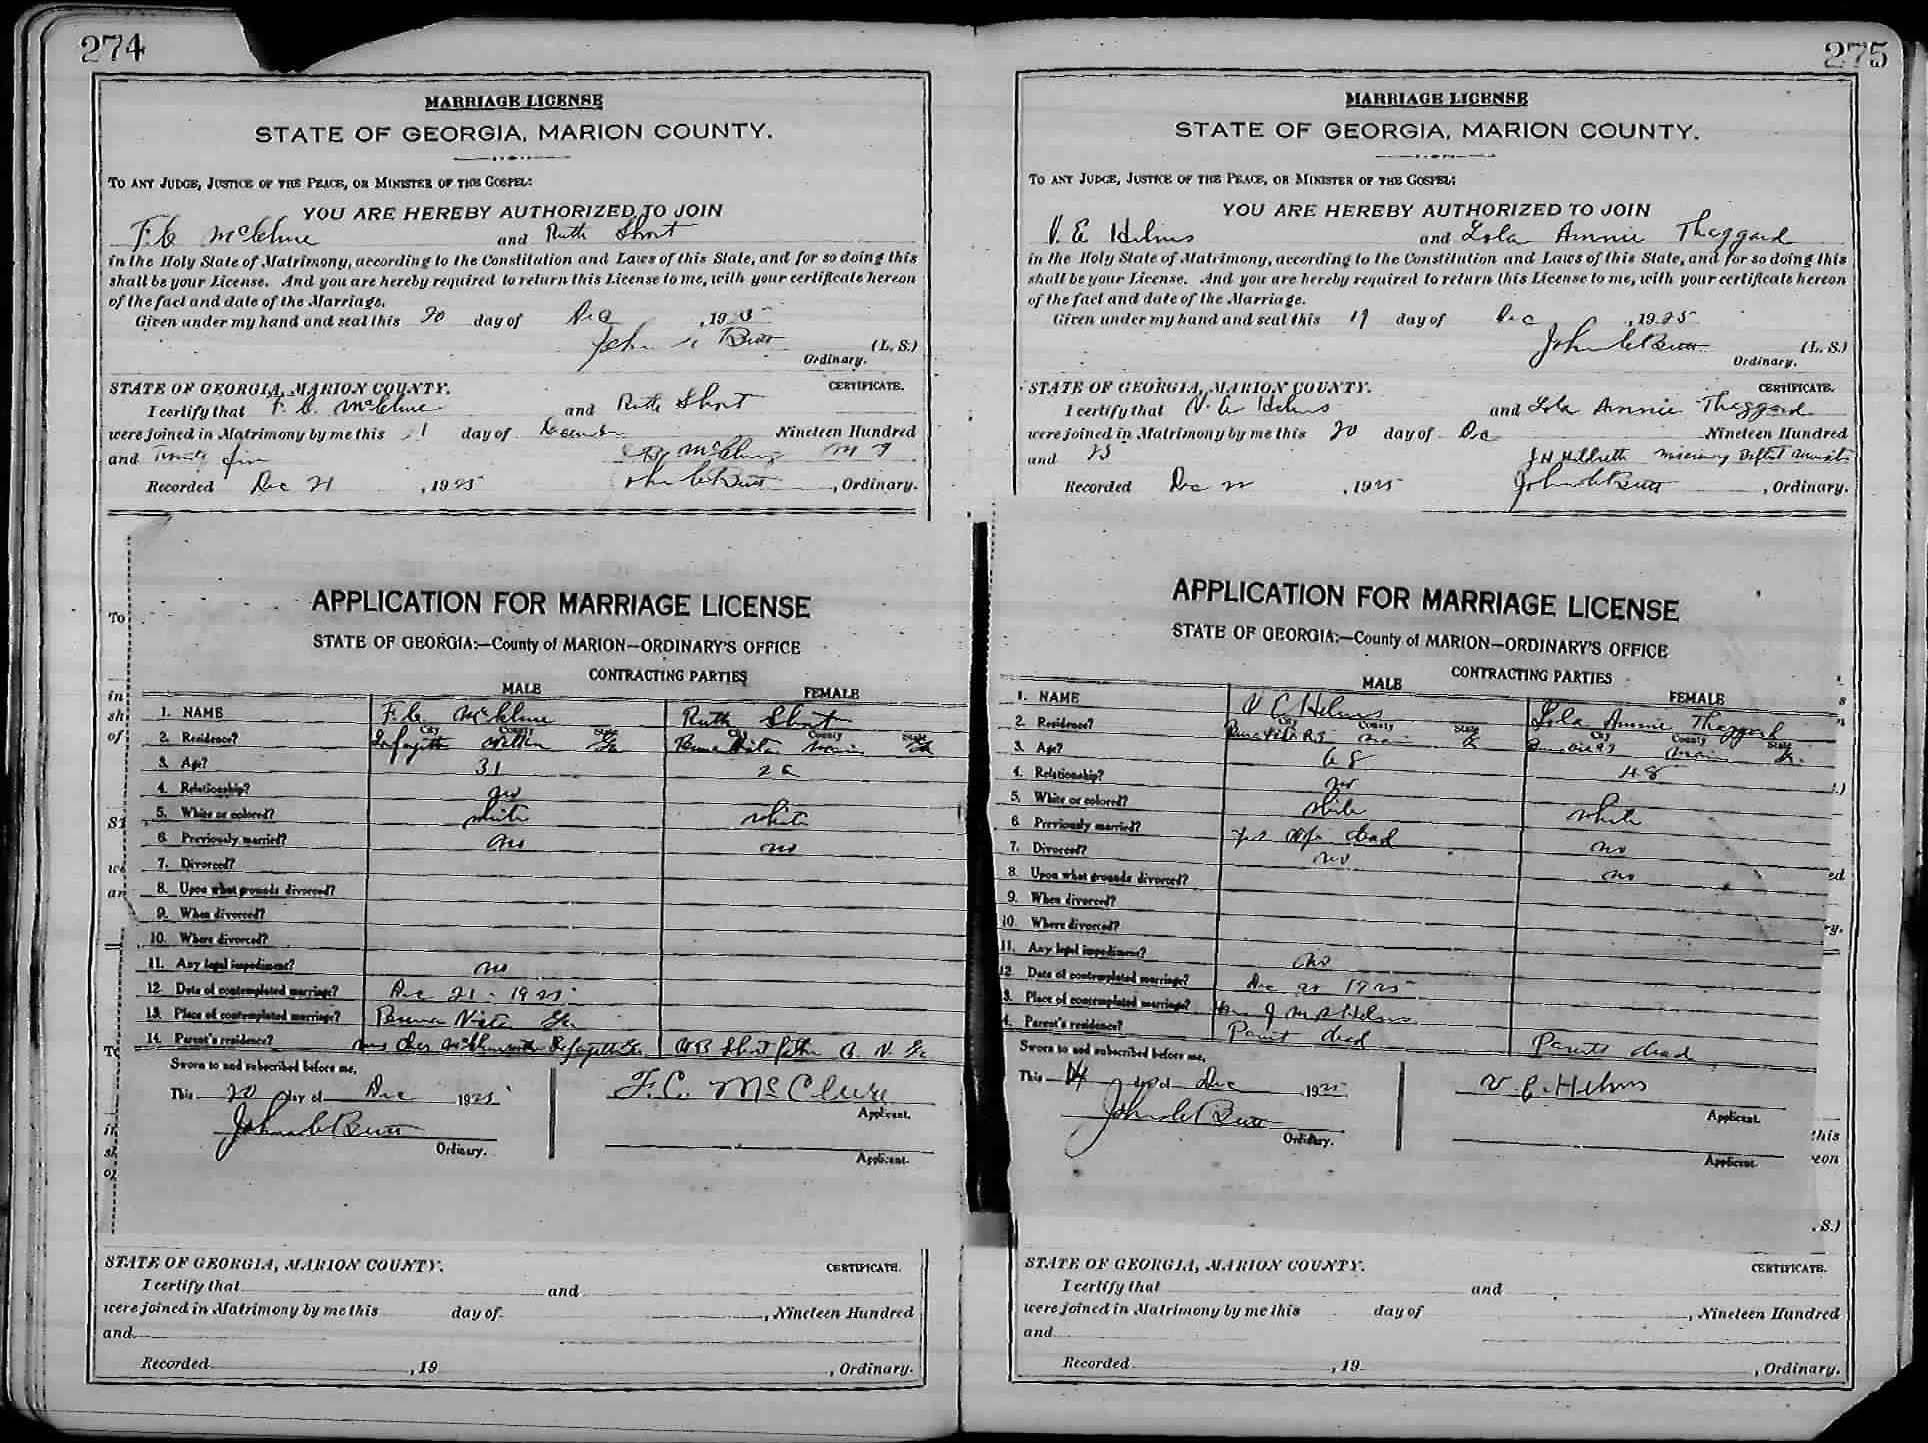 274
MARRIAGE LICENSE
STATE OF GEORGIA, MARION COUNTY.
TO ANY JUDGE, JUSTICE OF THE PEACE, OR MINISTER OF THE GOSPEL:
YOU ARE HEREBY AUTHORIZED TO JOIN
F. C. McClure and Ruth Short
in the Holy State of Matrimony, according to the Constitution and Laws of this State, and for so doing this
shall be your License. And you are hereby required to return this License to me, with your certificate hereon
of the fact and date of the Marriage.
Given under my hand and seal this 20 day of Dec , 19
John C Butt (L. S.)
Ordinary.
STATE OF GEORGIA, MARION COUNTY. CERTIFICATE.
I certify that F. C. McClure and Ruth Short
were joined in Matrimony by me this day of December Nineteen Hundred
and Twenty five McClure M G
Recorded Dec 21 , 1925 John C Butt , Ordinary.
To
in
sh
of
ST
we
an
To
in
sh
of
APPLICATION FOR MARRIAGE LICENSE
STATE OF GEORGIA:—County of MARION—ORDINARY'S OFFICE
CONTRACTING PARTIES
MALE FEMALE
1. NAME F. C. McClure Ruth Short
City County State City County State
2. Residence? Lafayette Walker Ga Buena Vista Marion Ga
3. Age? 31
4. Relationship? no
5. White or colored? white white
6. Previously married? no no
7. Divorced?
8. Upon what grounds divorced?
9. When divorced?
10. Where divorced?
11. Any legal impediment? no
12. Date of contemplated marriage? Dec 21 - 1925
13. Place of contemplated marriage? Buena Vista Ga
14. Parent's residence? Mrs McClure Lafayette Ga W B Short father B. V. Ga
Sworn to and subscribed before me,
This 20 day of Dec 1925 F. C. McClure
Applicant.
John C Butt
Ordinary.
Applicant.
STATE OF GEORGIA, MARION COUNTY. CERTIFICATE.
I certify that and
were joined in Matrimony by me this day of , Nineteen Hundred
and
Recorded , 19 , Ordinary.
275
MARRIAGE LICENSE
STATE OF GEORGIA, MARION COUNTY.
TO ANY JUDGE, JUSTICE OF THE PEACE, OR MINISTER OF THE GOSPEL:
YOU ARE HEREBY AUTHORIZED TO JOIN
V. E Helms and Lola Annie Thaggard
in the Holy State of Matrimony, according to the Constitution and Laws of this State, and for so doing this
shall be your License. And you are hereby required to return this License to me, with your certificate hereon
of the fact and date of the Marriage.
Given under my hand and seal this day of Dec , 1925
John C Butt (L. S.)
Ordinary.
STATE OF GEORGIA, MARION COUNTY. CERTIFICATE.
I certify that V. E Helms and Lola Annie Thaggard
were joined in Matrimony by me this 20 day of Dec Nineteen Hundred
and 25 J H Hildreth
Recorded Dec 22 , 1925 John C Butt , Ordinary.
APPLICATION FOR MARRIAGE LICENSE
STATE OF GEORGIA:—County of MARION—ORDINARY'S OFFICE
CONTRACTING PARTIES
MALE FEMALE
1. NAME V E Helms Lola Annie Thaggard
City County State City County State
2. Residence? Marion Ga Marion Ga.
3. Age? 68 48
4. Relationship? no
5. White or colored? white white
6. Previously married? yes wife dead no
7. Divorced? no no
8. Upon what grounds divorced?
9. When divorced?
10. Where divorced?
11. Any legal impediment? no
12. Date of contemplated marriage? Dec 20 1925
3. Place of contemplated marriage? Helms
4. Parent's residence? Parent dead Parents dead
Sworn to and subscribed before me,
This day of Dec 1925 V. E. Helms
Applicant.
John C Butt
Ordinary.
Applicant.
ed
ry.
this
eon
. S.)
STATE OF GEORGIA, MARION COUNTY. CERTIFICATE.
I certify that and
were joined in Matrimony by me this day of , Nineteen Hundred
and
Recorded , 19 , Ordinary.